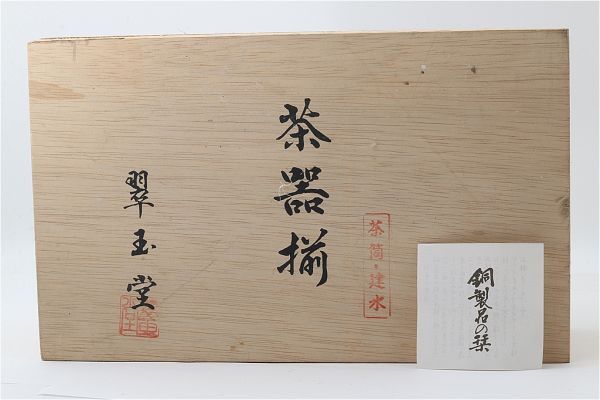 茶器揃
茶筒・建水
翠玉堂
銅製品の栞